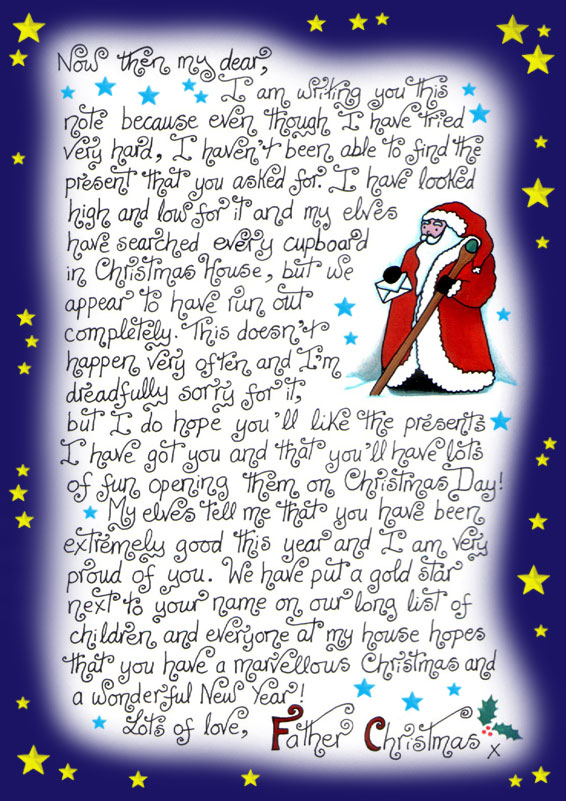 Now then my dear,
I am writing you this
note because even though I have tried
very hard, I haven't been able to find the
present that you asked for. I have looked
high and low for it and my elves
have searched every cupboard
in Christmas House, but we
appear to have run out
completely. This doesn't
happen very often and I'm
dreadfully sorry for it,
but I do hope you'll like the presents
I have got you and that you'll have lots
of fun opening them on Christmas Day!
My elves tell me that you have been
extremely good this year and I am very
proud of you. We have put a gold star
next to your name on our long list of
children and everyone at my house hopes
that you have a marvellous Christmas and
a wonderful New Year!
Lots of love, Father Christmas x